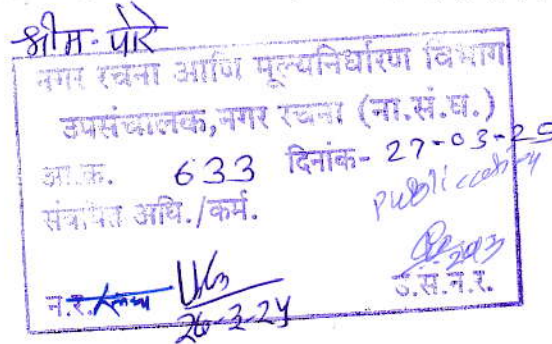 श्रीम. पोरे
नगर रचना आणि मूल्यनिर्धारण विभाग
उपसंचालक,नगर रचना (ना.सं.घ.)
आ.क्र. 633 दिनांक- 27-03-25
संबंधित अधि./कर्म.
न.र.
26-3-25
उ.सं.न.र.